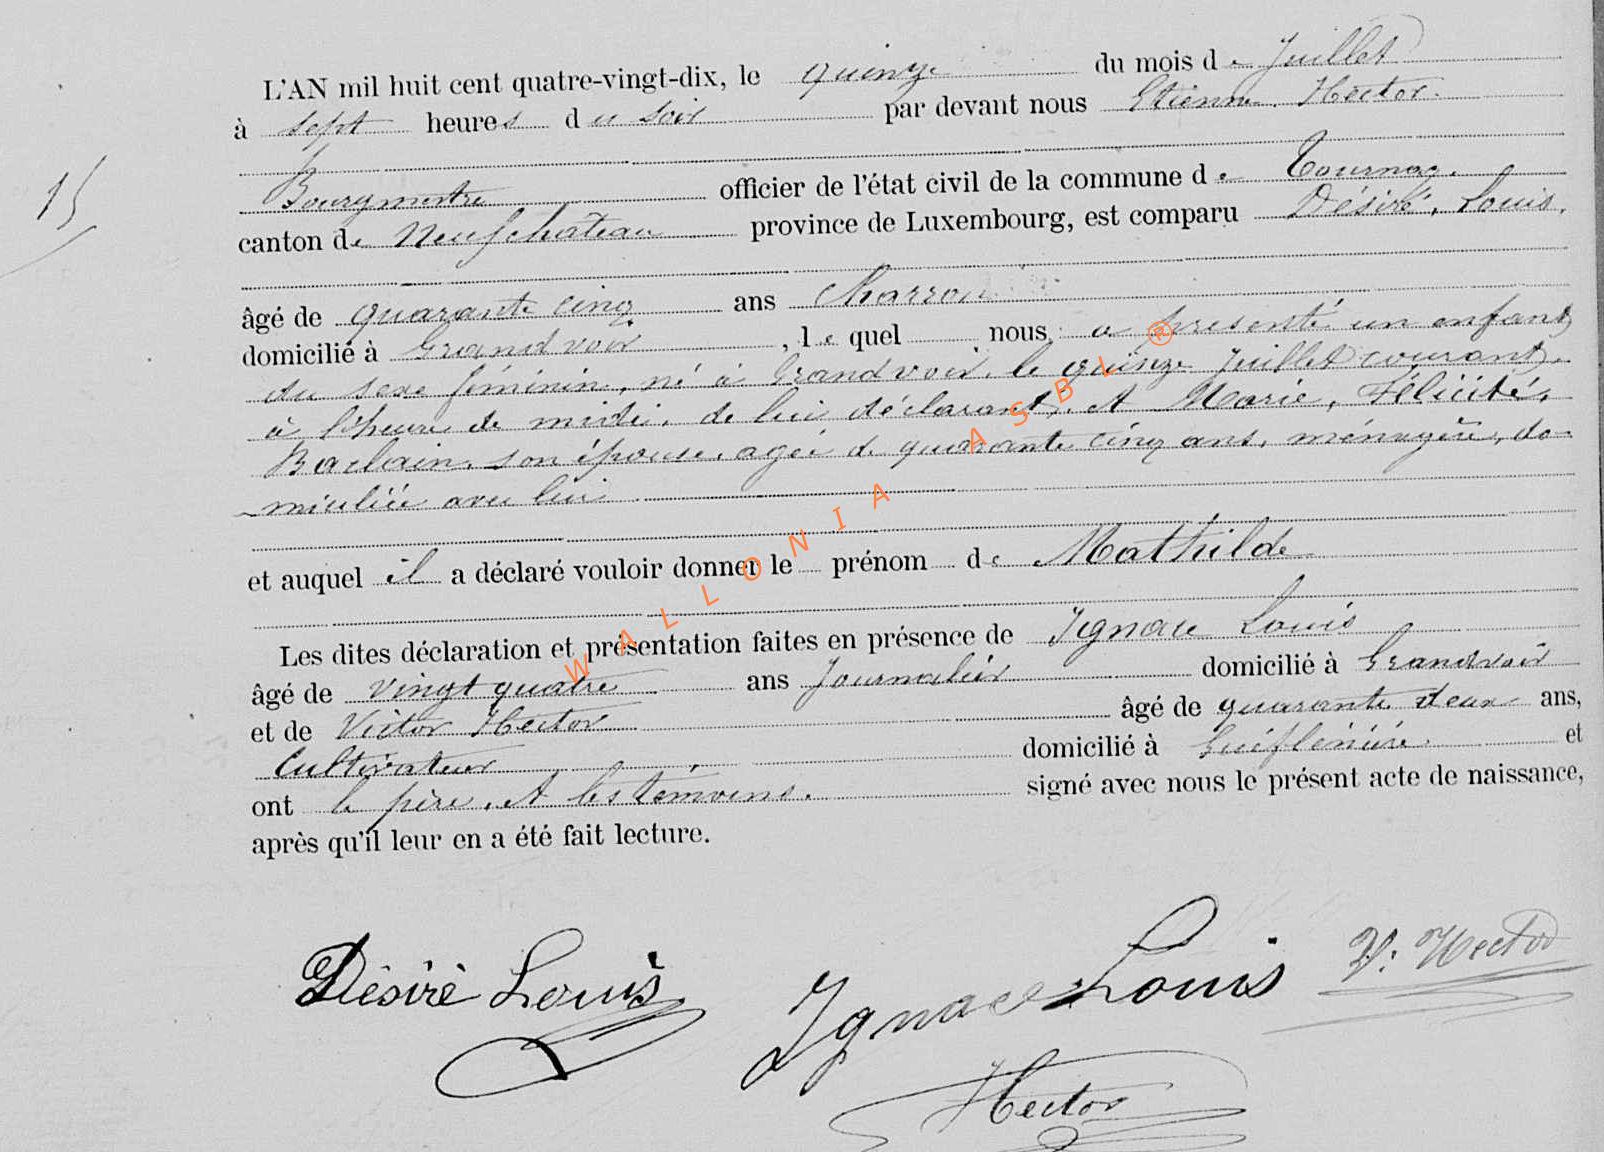 L'AN mil huit cent quatre-vingt-dix, le quinze du mois de Juillet
à sept heures du soir par devant nous Etienne Hector
Bourgmestre officier de l'état civil de la commune de Tournay.
15
canton de Neufchateau province de Luxembourg, est comparu Désiré, Louis,
âgé de quarante cinq ans charron
domicilié à Grandvoir, lequel nous a présenté un enfant
du sexe féminin, né à Grandvoir, le quinze Juillet courant,
à l'heure de midi, de lui déclarant, et Marie, Félicité,
son épouse, agée de quarante cinq ans, ménagère, do-
miciliée avec lui
et auquel il a déclaré vouloir donner le prénom de Mathilde
Les dites déclaration et présentation faites en présence de Ignace Louis
âgé de vingt quatre ans Journalier domicilié à Grandvoir
et de Victor Hector âgé de quarante deux ans,
Cultivateur domicilié à et
ont le père, et les témoins. signé avec nous le présent acte de naissance,
après qu'il leur en a été fait lecture.
WALLONIA ASBL ®
Désiré Louis
Ignace Louis
V. Hector
Hector